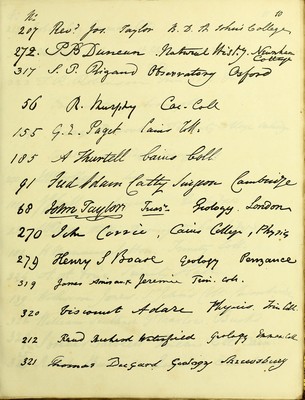 No.
10
207 Revd. Jos. Taylor B.D. St Johns College
272. P B Duncan. Natural Histy. New
College
317 S. P. Rigaud Observatory Oxford
56 R. Murphy Cai. Coll
155 G. E. Paget Caius
185 A Thurtell Caius Coll
91 Fred Adam Catty Surgeon Cambridge
68 John Taylor Treasr. Geology. London
270 John Corrie, Caius College, Physics
279 Henry S Boase Geology Penzance
319 James Amiraux Jeremie Trin. Coll.
320 Viscount Adare Physics, Trin Coll.
212 Read Richard Waterfield Geology Emman Coll.
321 Thomas Du Gard Geology Shrewsbury